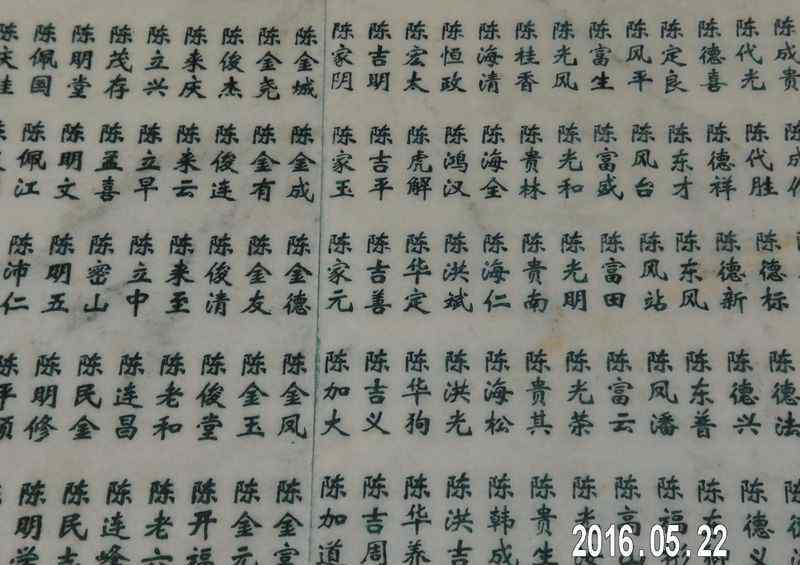 陈成贵
陈代光
陈代胜
陈德标
陈德法
陈德喜
陈德祥
陈德新
陈德兴
陈德义
陈定良
陈东才
陈东风
陈东普
陈风平
陈风台
陈风站
陈风潘
陈富生
陈富盛
陈富田
陈富云
陈光风
陈光和
陈光明
陈光荣
陈桂香
陈贵林
陈贵南
陈贵其
陈贵生
陈海清
陈海全
陈海仁
陈海松
陈韩成
陈恒政
陈鸿汉
陈洪斌
陈洪光
陈洪吉
陈宏太
陈虎解
陈华定
陈华狗
陈华养
陈吉明
陈吉平
陈吉善
陈吉义
陈吉周
陈家阴
陈家玉
陈家元
陈加大
陈加道
陈金城
陈金成
陈金德
陈金凤
陈金富
陈金尧
陈金有
陈金友
陈金玉
陈金元
陈俊杰
陈俊连
陈俊清
陈俊堂
陈开福
陈来庆
陈来云
陈来至
陈老和
陈老六
陈立兴
陈立早
陈立中
陈连昌
陈连峰
陈茂存
陈孟喜
陈密山
陈民金
陈民志
陈明堂
陈明文
陈明五
陈明修
陈明学
陈佩国
陈佩江
陈沛仁
2016.05.22